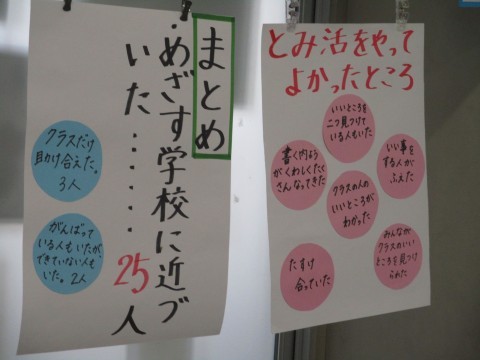 まとめ
・めざす学校に近づ
いた………25人
クラスだけ
助け合えた。
3人
がんばって
いる人もいたが、
できていない人も
いた。2人
とみ活をやって
よかったところ
いいところを
二つ見つけて
いる人もいた
書く内よう
がくわしくたく
さんなってきた
いい事を
する人が
ふえた
クラスの人の
いいところが
わかった
たすけ
合っていた
みんなが
クラスのいい
ところを見つけ
られた